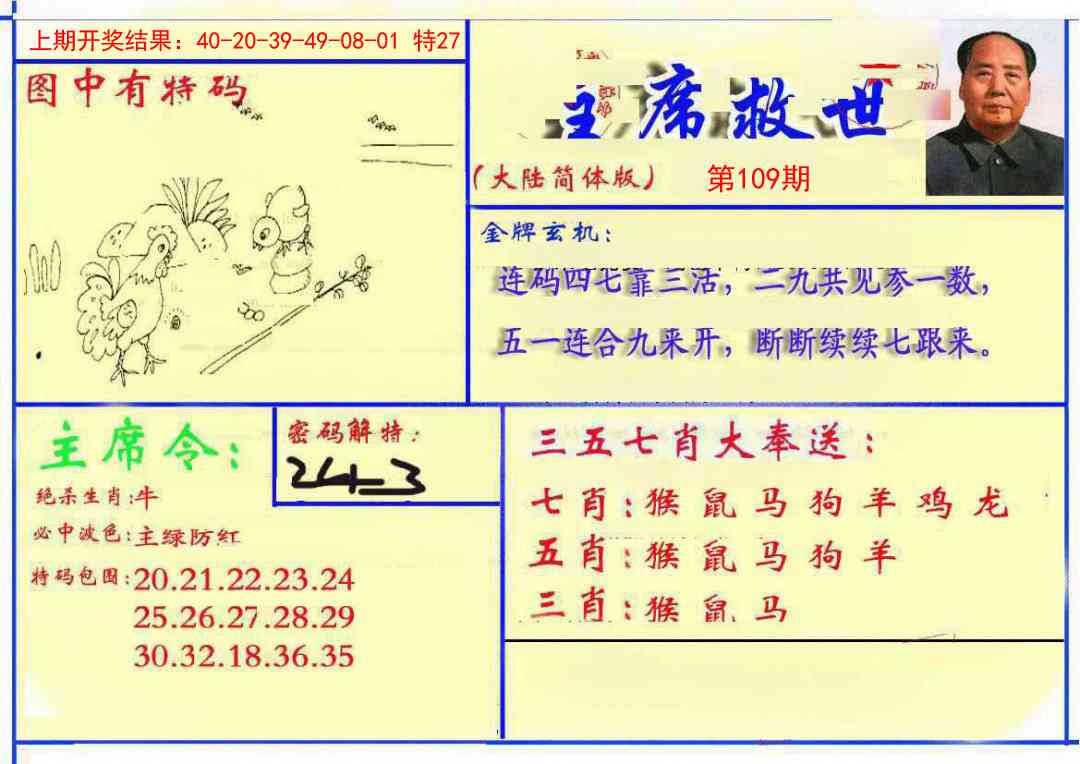 上期开奖结果：40-20-39-49-08-01 特27
图中有特码
主席救世
（大陆简体版） 第109期
金牌玄机：
连码四七靠三活，二九共见参一数，
五一连合九来开，断断续续七跟来。
主席令：
绝杀生肖：牛
必中波色：主绿防红
特码包围：20.21.22.23.24
25.26.27.28.29
30.32.18.36.35
密码解特：
三五七肖大奉送：
七肖：猴 鼠 马 狗 羊 鸡 龙
五肖：猴 鼠 马 狗 羊
三肖：猴 鼠 马